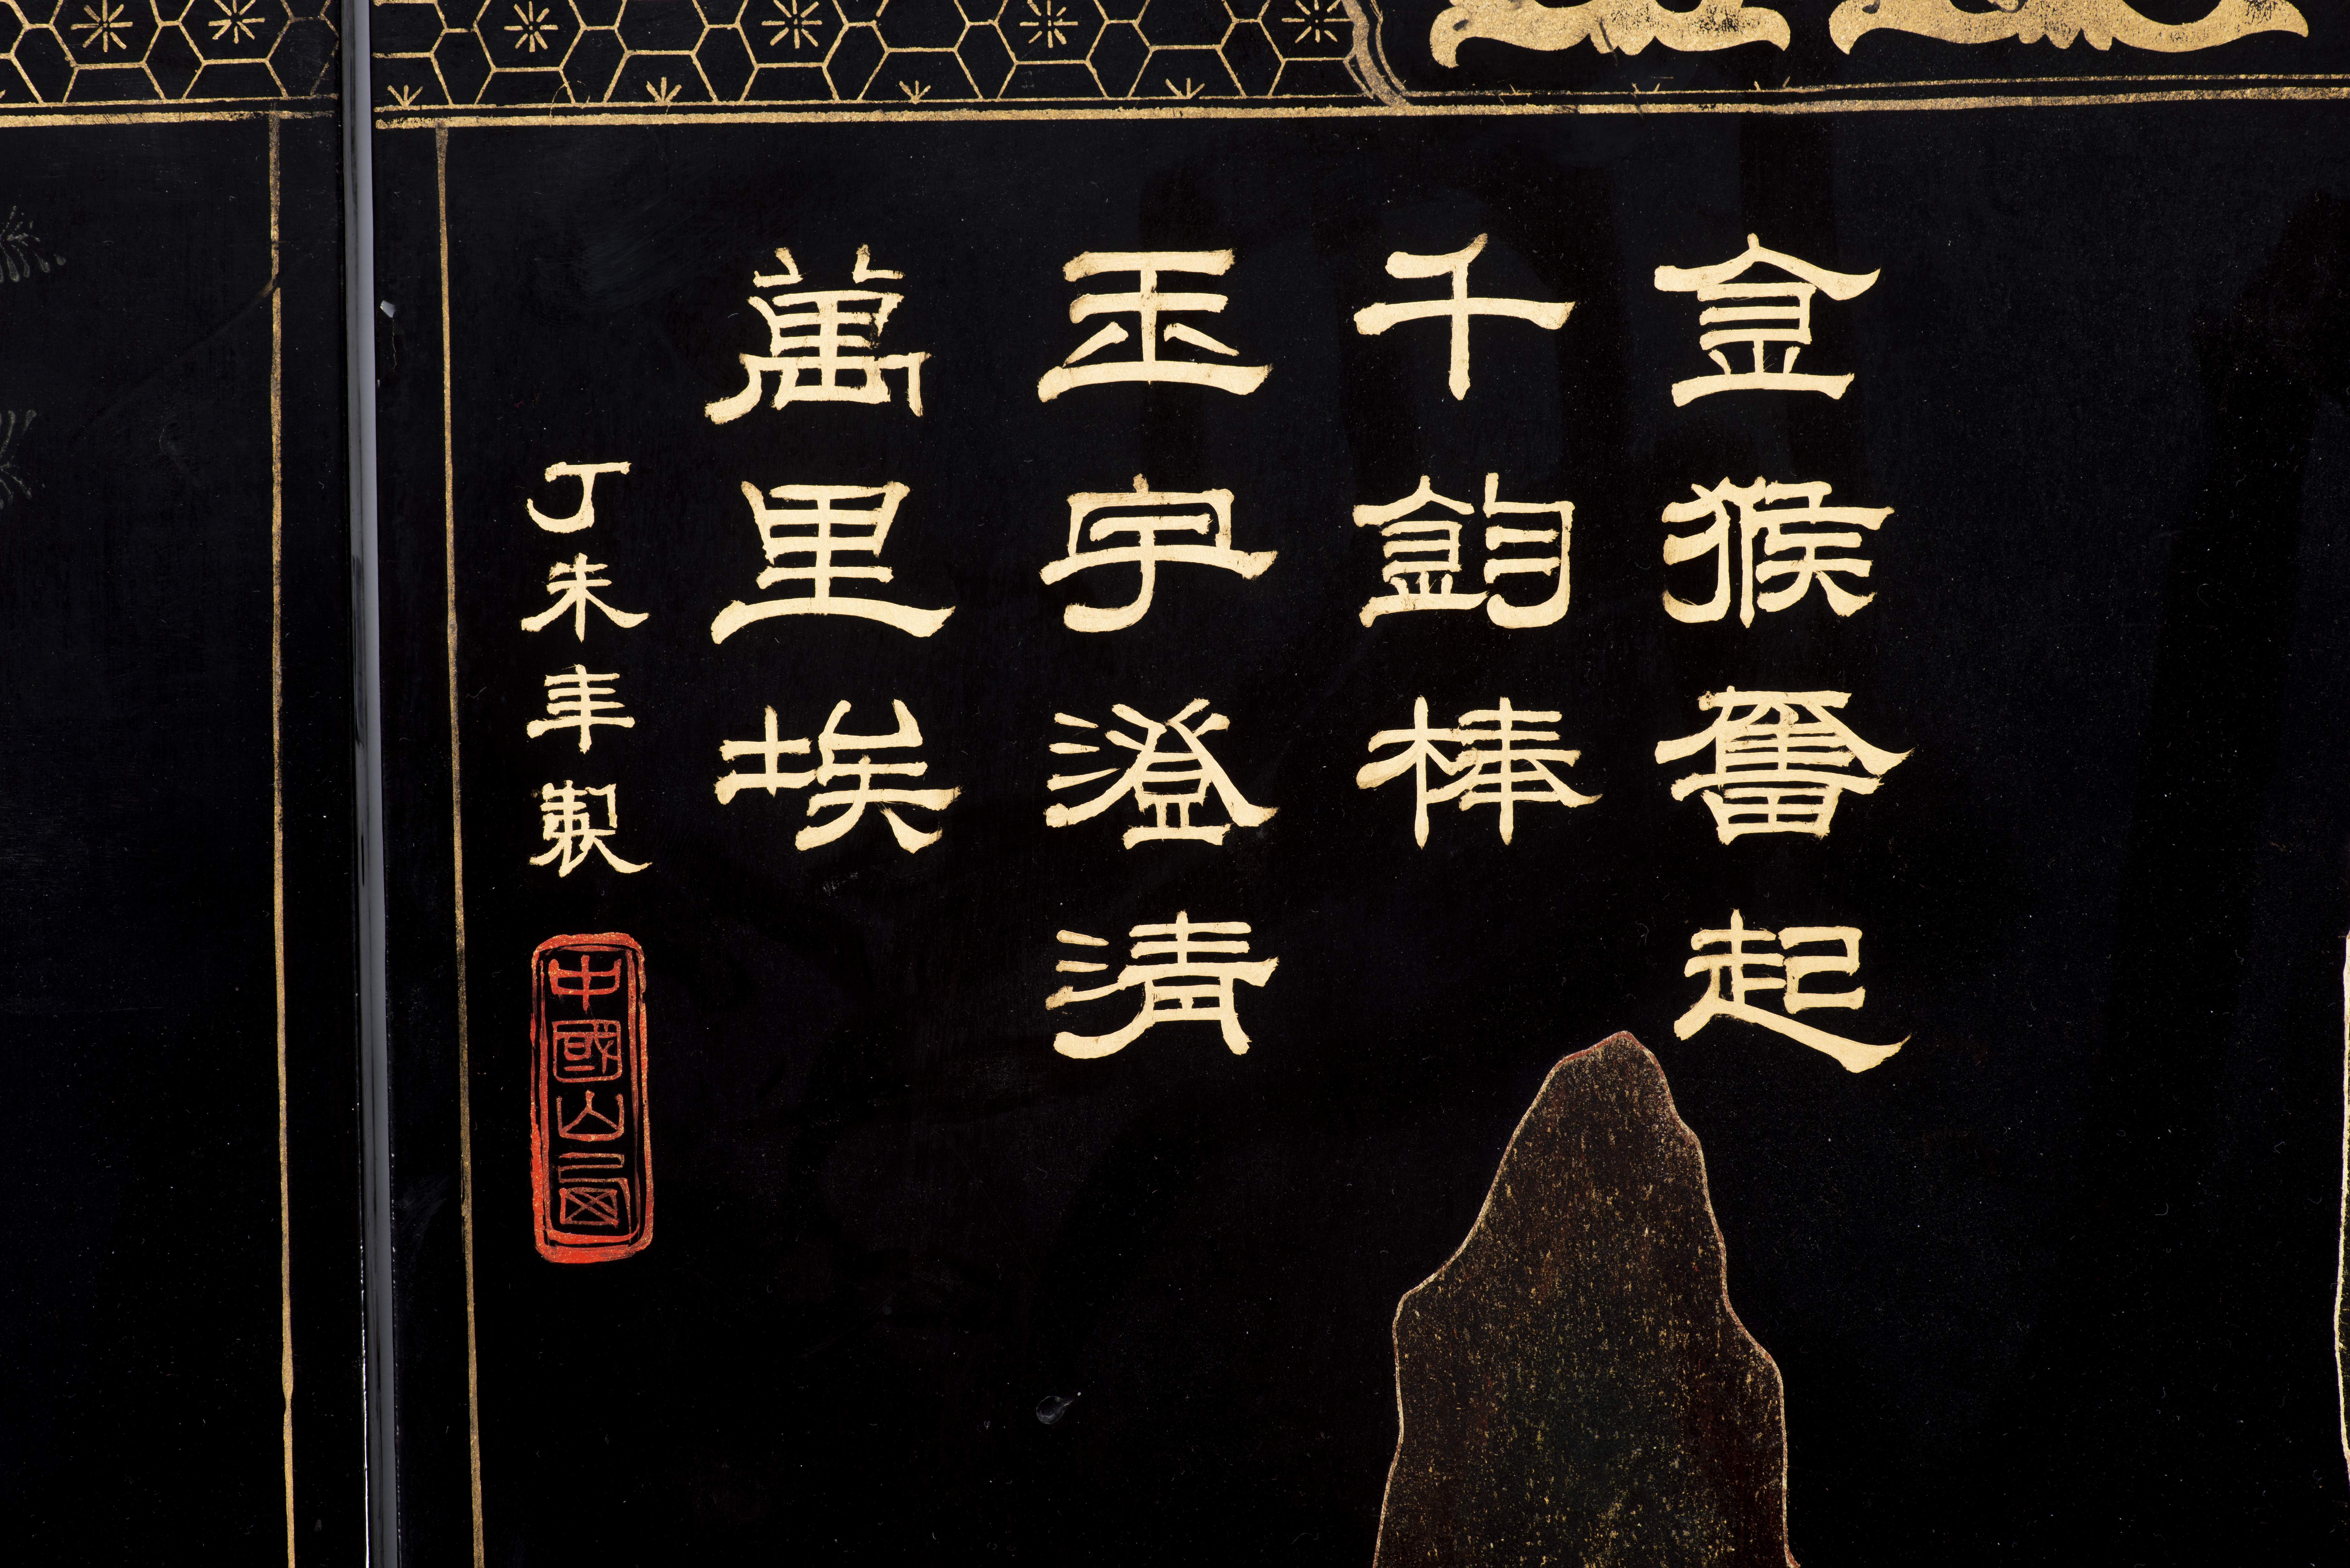 金猴奮起
千鈞棒
玉宇澄清
萬里埃
丁未年製
中國山西